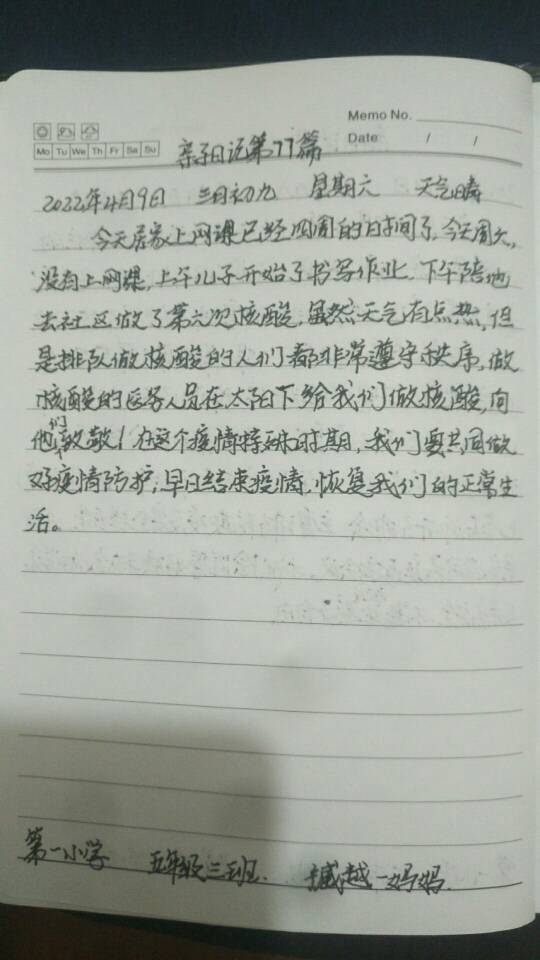 Memo No.
Mo Tu We Th Fr Sa Su
Date / /
亲子日记第77篇
2022年4月9日 三月初九 星期六 天气晴
今天居家上网课已经四周的时间了,今天周六,
没有上网课,上午儿子开始了书写作业,下午陪他
去社区做了第六次核酸,虽然天气有点热,但
是排队做核酸的人们都非常遵守秩序,做
核酸的医务人员在太阳下给我们做核酸,向
他们致敬!在这个疫情特殊时期,我们要共同做
好疫情防护,早日结束疫情,恢复我们的正常生
活。
第一小学 五年级三班 越一妈妈